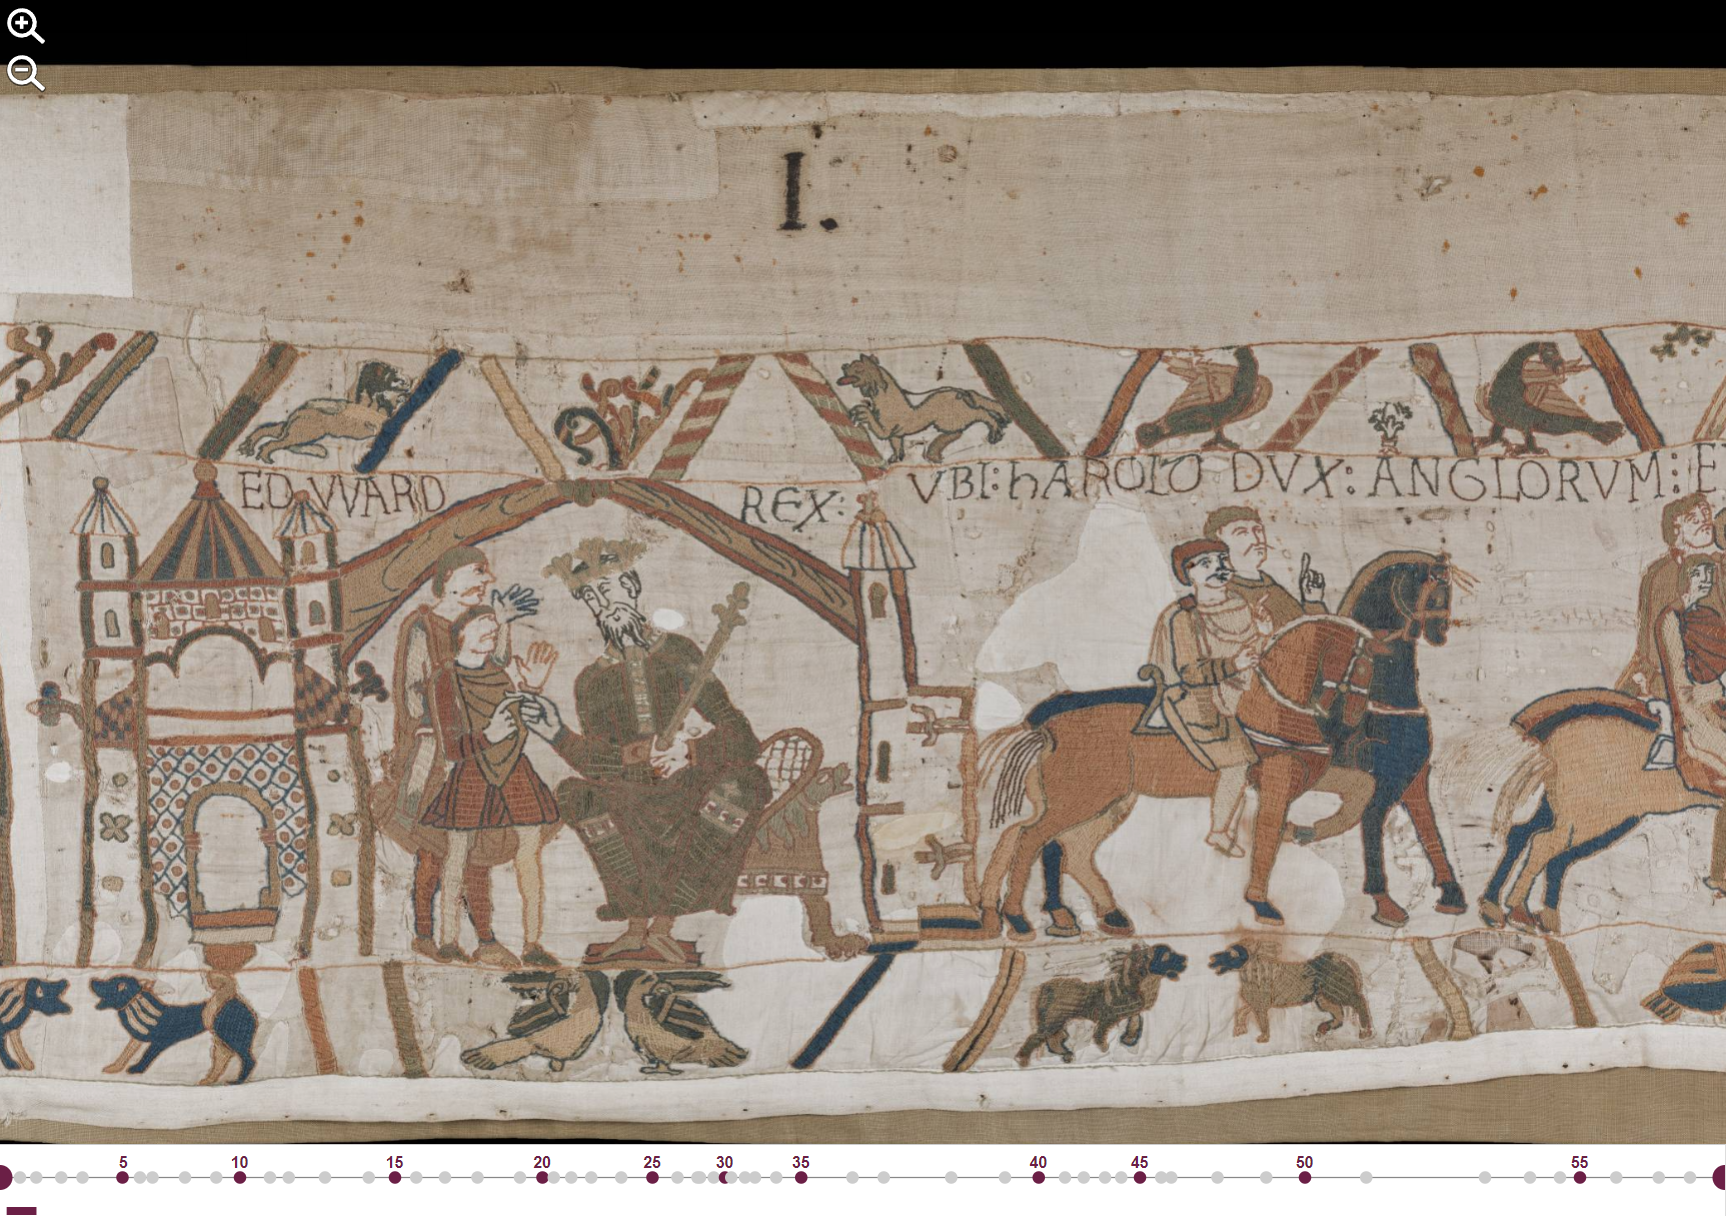 I.
EDVVARD REX: VBI: hAROLD DVX: ANGLORVM: E
5 10 15 20 25 30 35 40 45 50 55